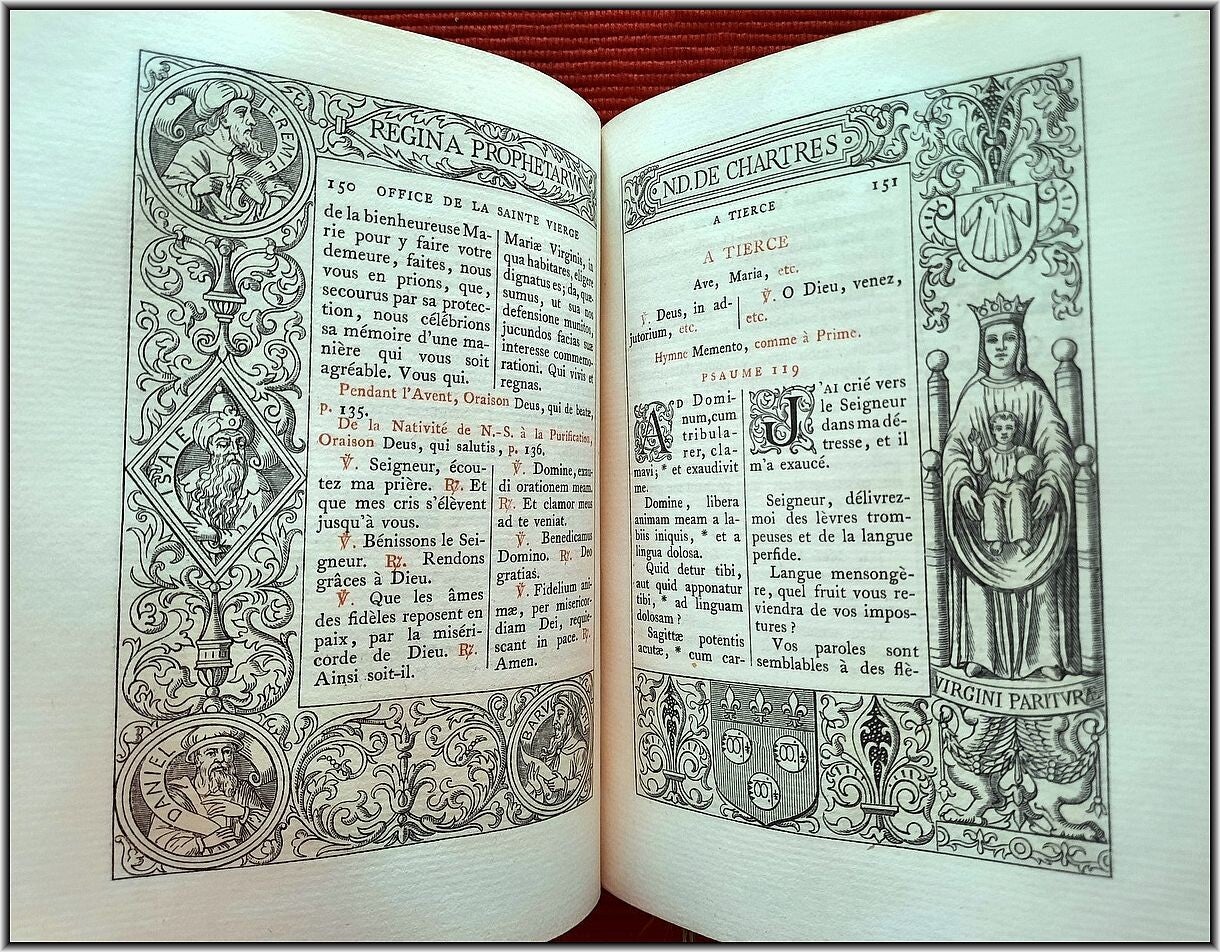 REGINA PROPHETARVM
JEREMIE
ISAIE
DANIEL
BARVC
150 OFFICE DE LA SAINTE VIERGE
de la bienheureuse Ma-
rie pour y faire votre
demeure, faites, nous
vous en prions, que,
secourus par sa protec-
tion, nous célébrions
sa mémoire d'une ma-
nière qui vous soit
agréable. Vous qui.
Mariæ Virginis, in
qua habitares, eligere
dignatus es; da, quæ-
sumus, ut sua nos
defensione munitos,
jucundos facias suæ
interesse commemo-
rationi. Qui vivis et
regnas.
Pendant l'Avent, Oraison Deus, qui de beatæ,
p. 135.
De la Nativité de N.-S. à la Purification,
Oraison Deus, qui salutis, p. 136.
℣. Seigneur, écou-
tez ma prière. ℟. Et
que mes cris s'élèvent
jusqu'à vous.
℣. Bénissons le Sei-
gneur. ℟. Rendons
grâces à Dieu.
℣. Que les âmes
des fidèles reposent en
paix, par la miséri-
corde de Dieu. ℟.
Ainsi soit-il.
℣. Domine, exau-
di orationem meam.
℟. Et clamor meus
ad te veniat.
℣. Benedicamus
Domino. ℟. Deo
gratias.
℣. Fidelium ani-
mæ, per misericor-
diam Dei, requie-
scant in pace. ℟.
Amen.
N.D. DE CHARTRES
A TIERCE 151
A TIERCE
Ave, Maria, etc.
℣. Deus, in ad-
jutorium, etc.
℣. O Dieu, venez,
etc.
Hymne Memento, comme à Prime.
PSAUME 119
AD Domi-
num, cum
tribula-
rer, cla-
mavi; * et exaudivit
me.
Domine, libera
animam meam a la-
biis iniquis, * et a
lingua dolosa.
Quid detur tibi,
aut quid apponatur
tibi, * ad linguam
dolosam ?
Sagittæ potentis
acutæ, * cum car-
J'AI crié vers
le Seigneur
dans ma dé-
tresse, et il
m'a exaucé.
Seigneur, délivrez-
moi des lèvres trom-
peuses et de la langue
perfide.
Langue mensongè-
re, quel fruit vous re-
viendra de vos impos-
tures ?
Vos paroles sont
semblables à des flè-
VIRGINI PARITVRÆ